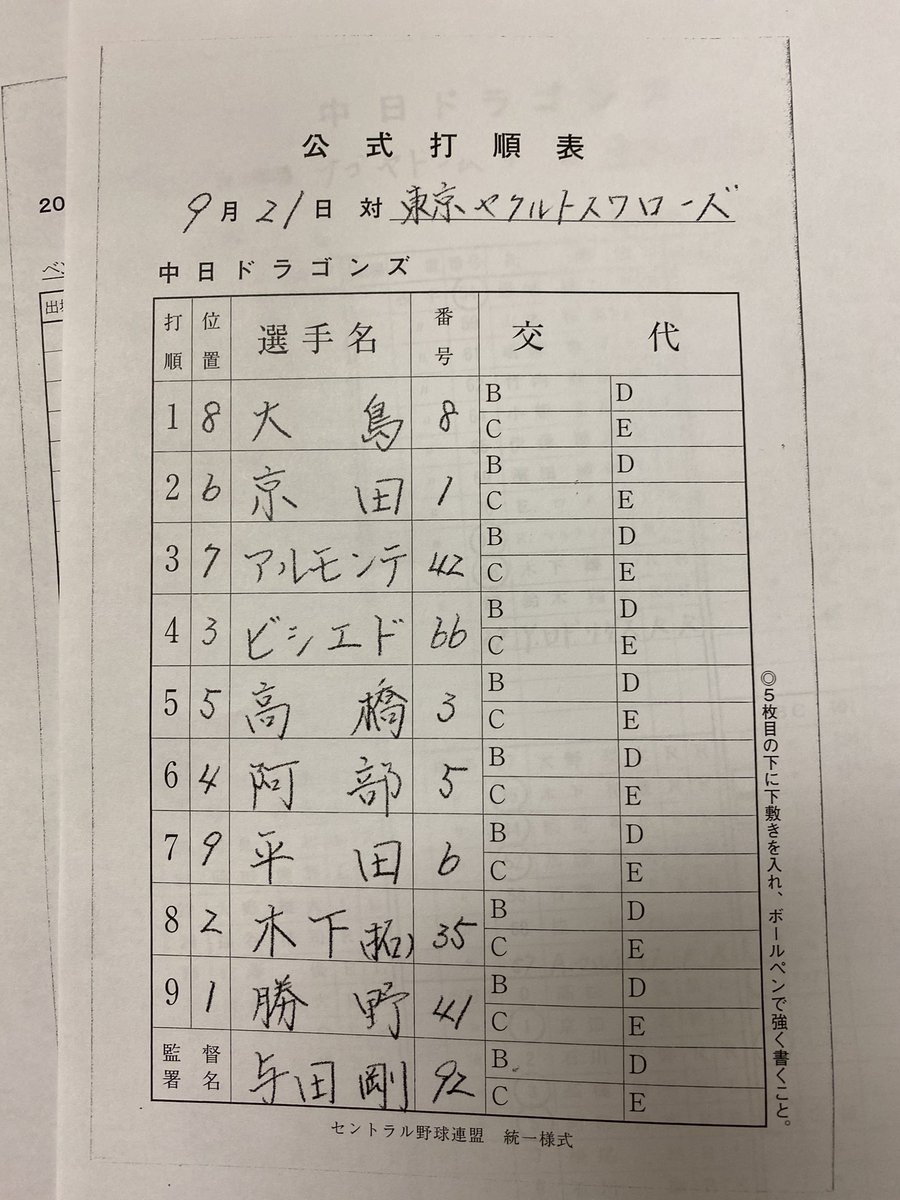 公式打順表
9月21日 対 東京ヤクルトスワローズ
中日ドラゴンズ
打順 位置 選手名 番号 交代
1 8 大島 8 B D C E
2 6 京田 1 B D C E
3 7 アルモンテ 42 B D C E
4 3 ビシエド 66 B D C E
5 5 高橋 3 B D C E
6 4 阿部 5 B D C E
7 9 平田 6 B D C E
8 2 木下(拓) 35 B D C E
9 1 勝野 41 B D C E
監督署名 与田剛 92 B D C E
セントラル野球連盟 統一様式
◎5枚目の下に下敷きを入れ、ボールペンで強く書くこと。
20